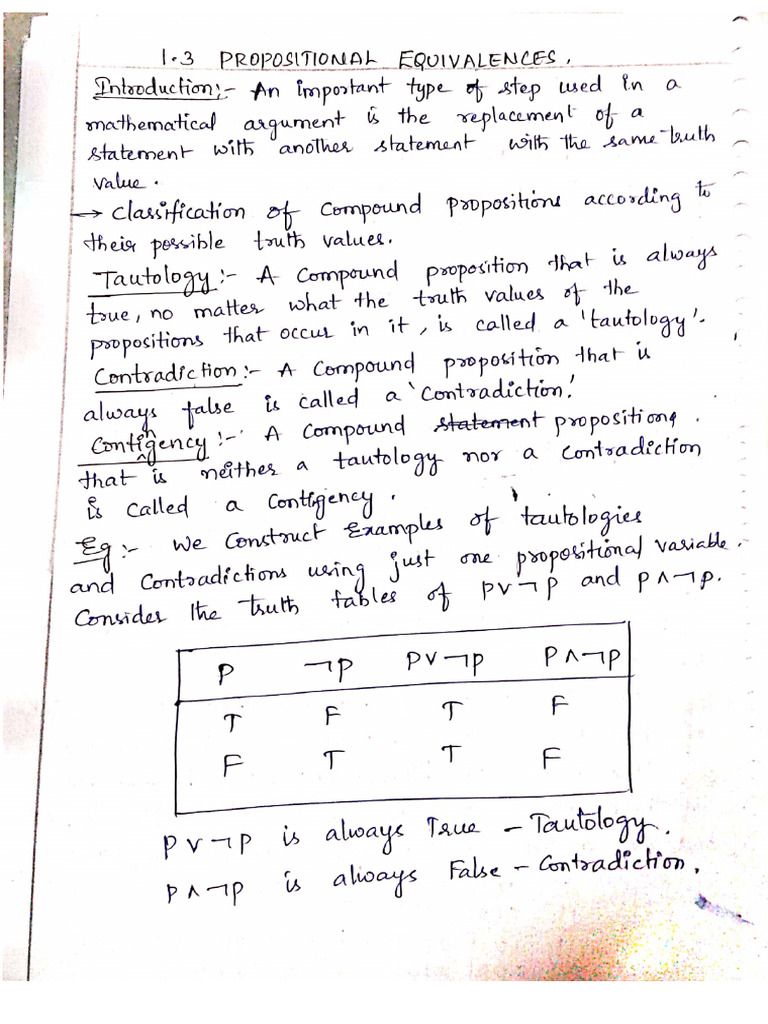 1.3 PROPOSITIONAL EQUIVALENCES.
Introduction:- An important type of step used in a
mathematical argument is the replacement of a
statement with another statement with the same truth
value.
→ Classification of Compound propositions according to
their possible truth values.
Tautology:- A Compound proposition that is always
true, no matter what the truth values of the
propositions that occur in it, is called a 'tautology'.
Contradiction:- A Compound proposition that is
always false is called a 'Contradiction.'
Contingency:- A Compound statement propositions.
that is neither a tautology nor a Contradiction
is called a Contigency.
Eg:- We Construct Examples of tautologies
and Contradictions using just one propositional variable.
Consider the truth tables of p∨¬p and p∧¬p.
P ¬p p∨¬p p∧¬p
T F T F
F T T F
p∨¬p is always True - Tautology.
p∧¬p is always False - Contradiction.